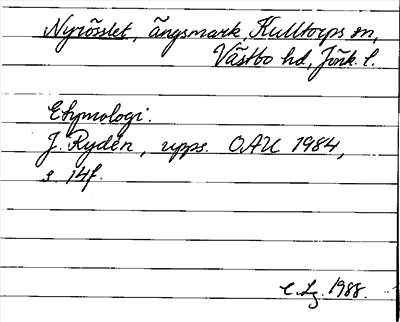 Nyrösslet, ängsmark, Kulltorps sn,
Västbo hd, Jönk. l.
Etymologi.
J. Rydén, upps. OAU 1984,
s. 14f.
E. Lg. 1988.